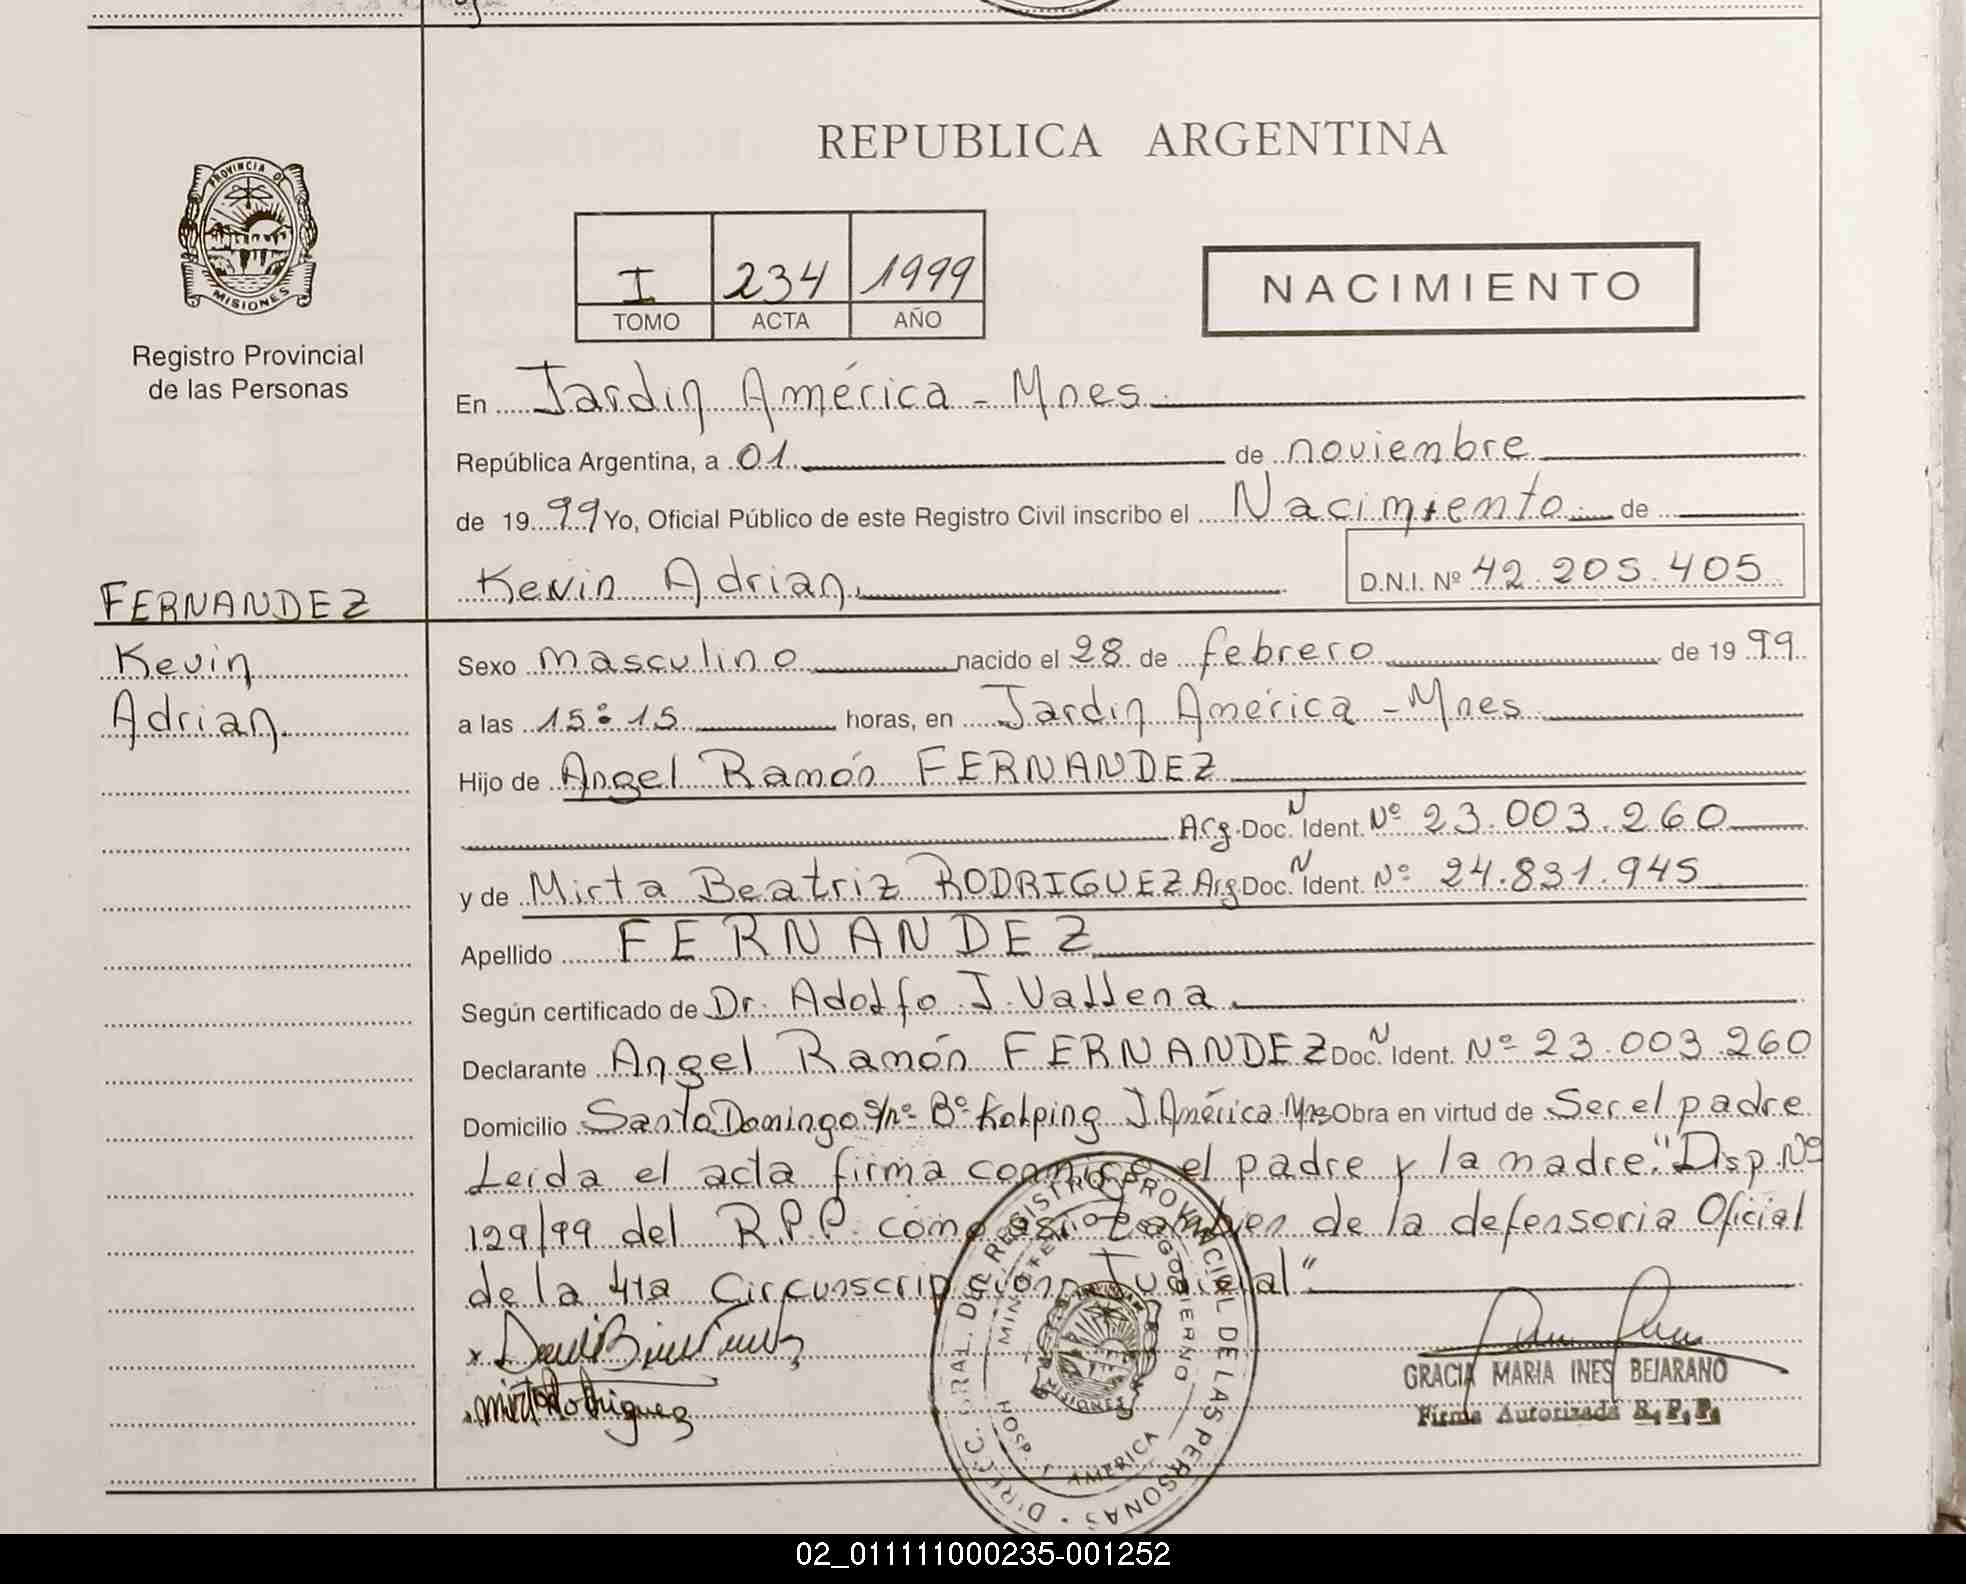 REPUBLICA ARGENTINA
PROVINCIA DE
MISIONES
Registro Provincial
de las Personas
I 234 1999
TOMO ACTA AÑO
NACIMIENTO
En Jardin América - Mnes.
República Argentina, a 01 de noviembre
de 1999 Yo, Oficial Público de este Registro Civil inscribo el Nacimiento de
Kevin Adrian. D.N.I. Nº 42.205.405
FERNANDEZ
Kevin
Adrian.
Sexo masculino nacido el 28 de febrero de 1999
a las 15:15 horas, en Jardin América - Mnes
Hijo de Angel Ramón FERNANDEZ
Arg. Doc. N Ident. Nº 23.003.260
y de Mirta Beatriz RODRIGUEZ Arg Doc. N Ident. Nº 24.831.945
Apellido FERNANDEZ
Según certificado de Dr. Adolfo J. Vallena
Declarante Angel Ramón FERNANDEZ Doc. N Ident. Nº 23.003.260
Domicilio Santo Domingo s/nº Bº Kolping J. América Mnes Obra en virtud de Ser el padre
Leida el acta firma conmigo el padre y la madre. "Disp. Nº
129/99 del R.P.P. como asi tambien de la defensoria Oficial
de la 4ta Circunscripcion Judicial"
Mirta Rodriguez
DIRECC. GRAL. DEL REGISTRO PROVINCIAL DE LAS PERSONAS
MINISTERIO DE GOBIERNO
HOSP. J. AMERICA
MISIONES
GRACIA MARIA INES BEJARANO
Firma Autorizada R.P.P.
02_011111000235-001252